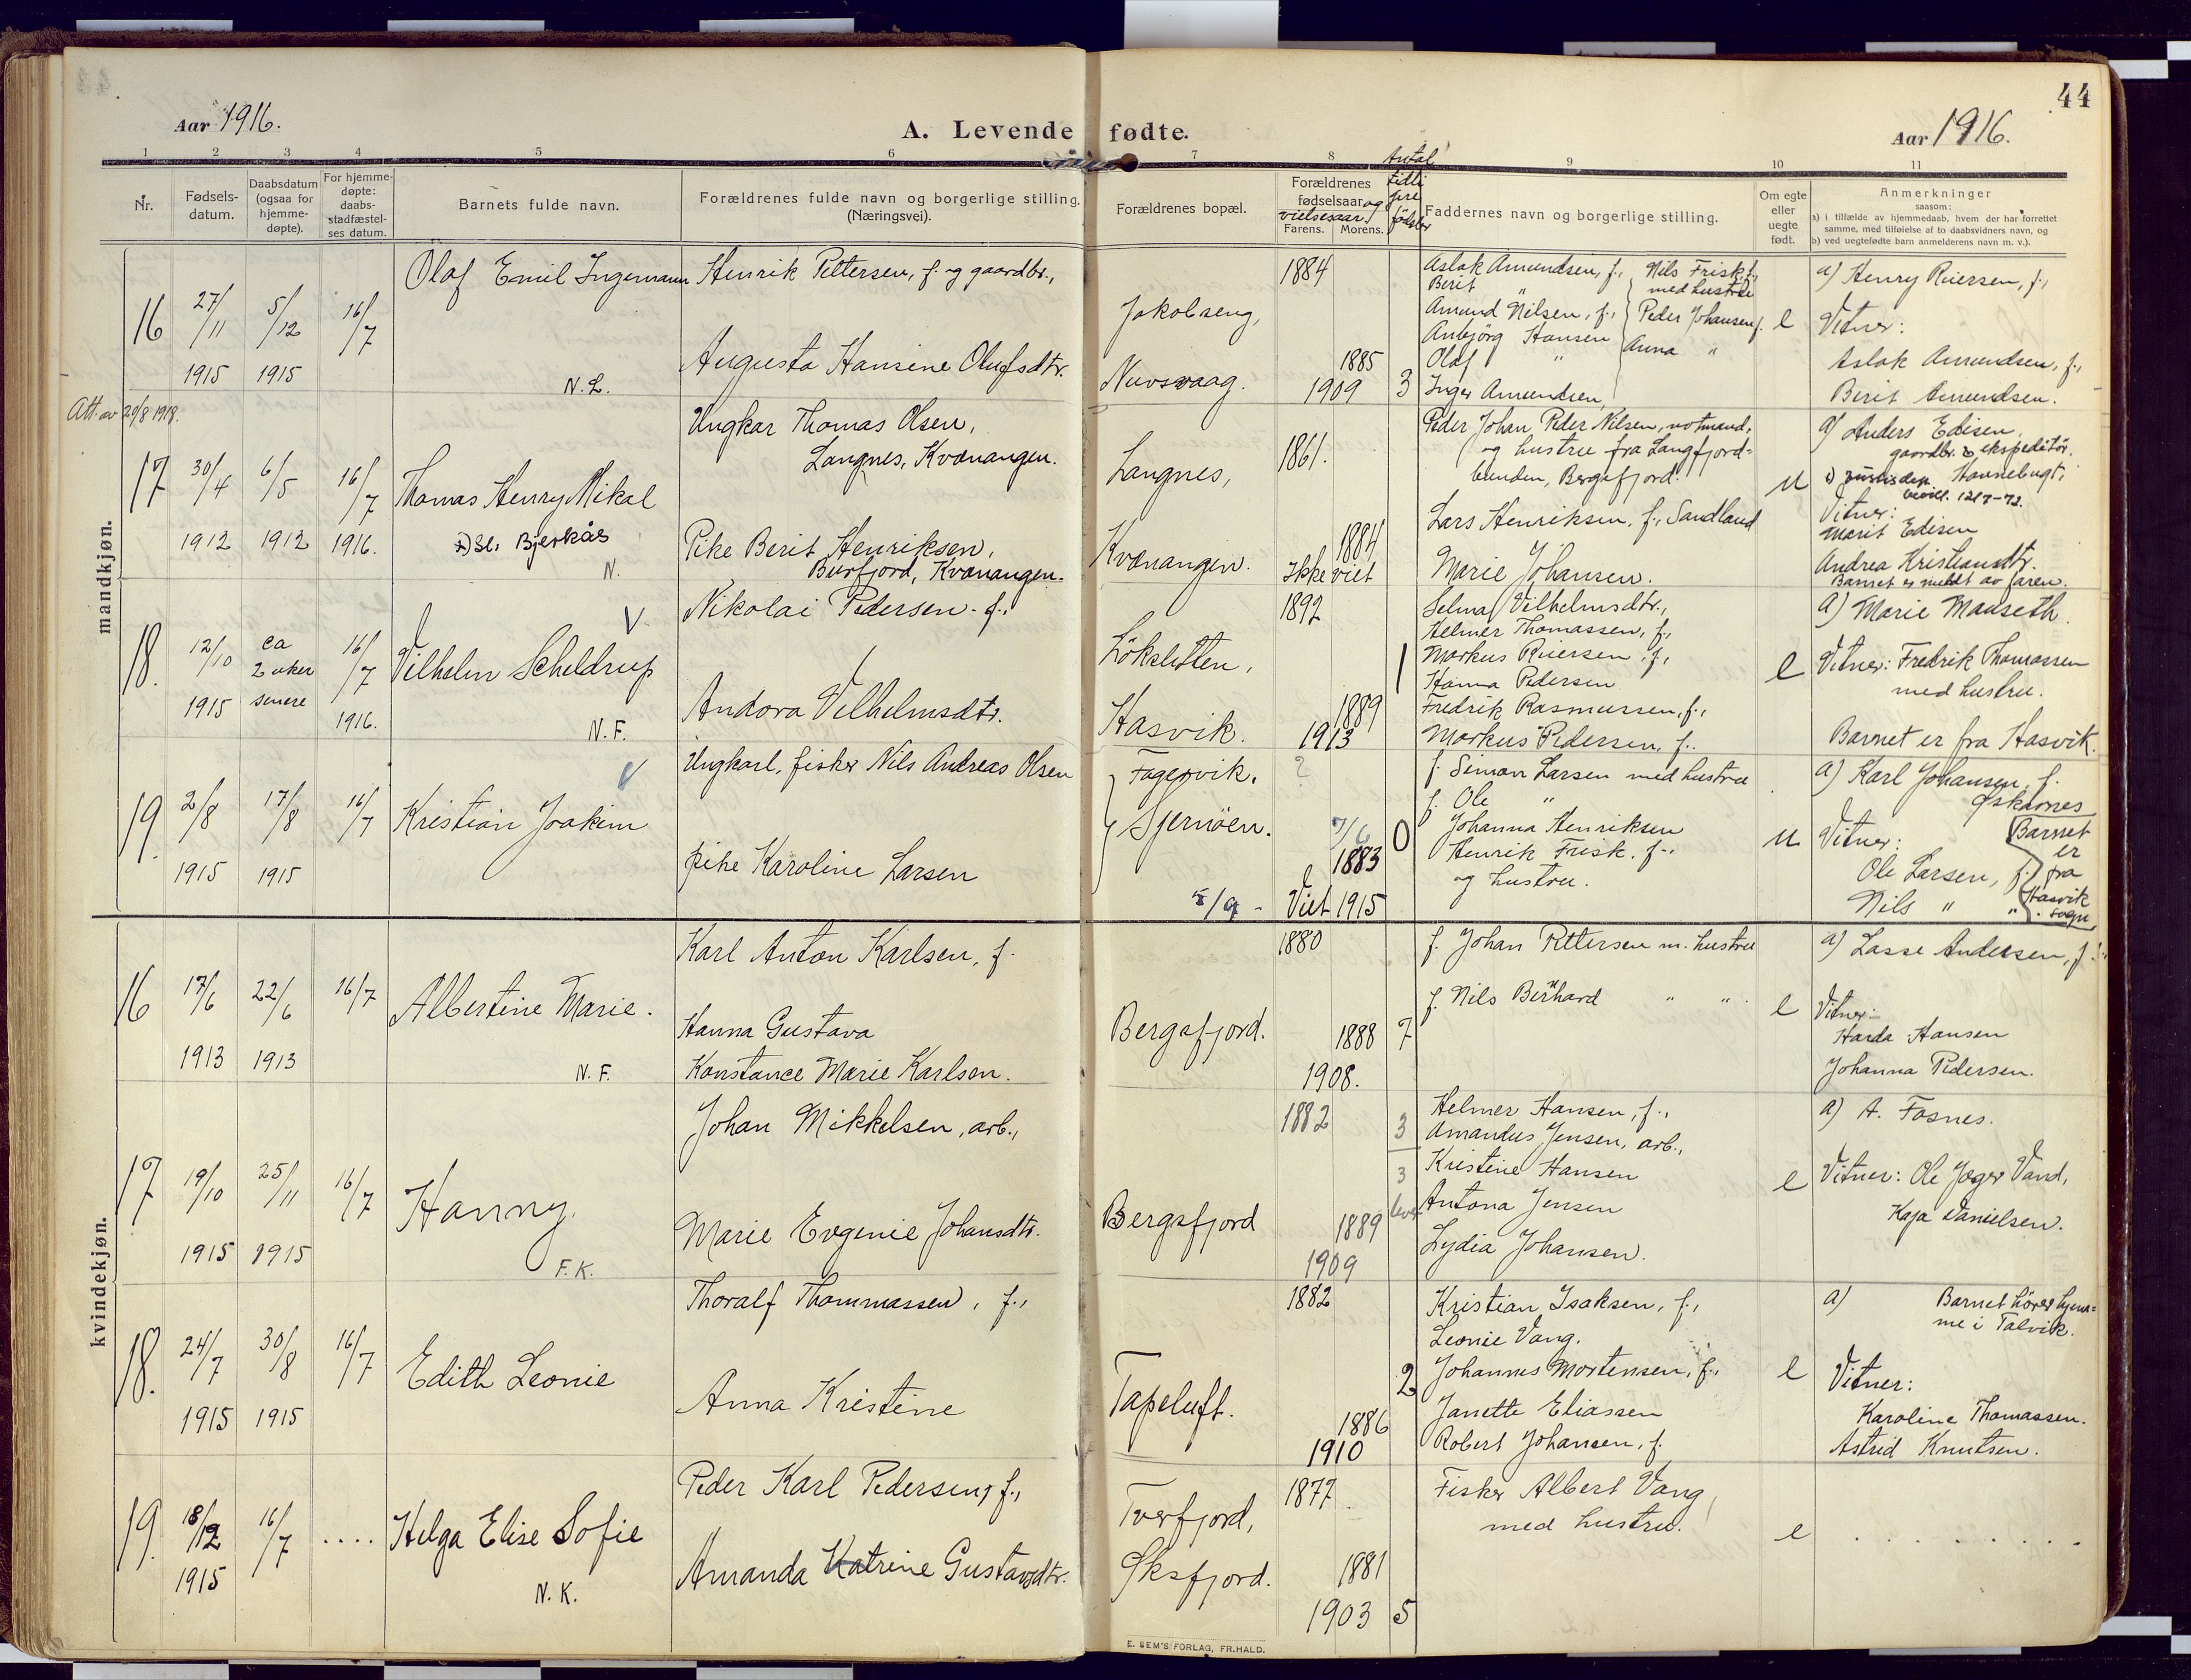 44
Aar 1916.
A. Levende fødte.
Aar 1916.
1 2 3 4 5 6 7 8 9 10 11
Nr.
Fødsels-
datum.
Daabsdatum
(ogsaa for
hjemme-
døpte).
For hjemme-
døpte:
daabs-
stadfæstel-
ses datum.
Barnets fulde navn.
Forældrenes fulde navn og borgerlige stilling.
(Næringsvei).
Forældrenes bopæl.
Forældrenes
fødselsaar og
vielsesaar.
Farens. Morens.
Antal
tidli
gere
fødsler
Faddernes navn og borgerlige stilling.
Om egte
eller
uegte
født.
Anmerkninger
saasom:
a) i tilfælde av hjemmedaab, hvem der har forrettet
samme, med tilføielse af to daabsvidners navn, og
b) ved uegtefødte barn anmelderens navn m. v.).
mandkjøn.
16
27/11
1915
5/12
1915
16/7
Olaf Emil Ingemann
N. L.
Henrik Pettersen, f. og gaardbr.,
Augusta Hansine Olufsdtr.
Jakobseng,
Nuvsvaag.
1884
1885
1909
3
Aslak Amundsen, f.,
Berit "
Amund Nilsen, f.,
Anbjörg Hansen
Olaf "
Inger Amundsen,
Nils Frisk f.,
med hustru
Peder Johansen f.
Anna "
e
a) Henry Riersen, f.,
Vitner:
Aslak Amundsen, f.,
Berit Amundsen.
Att. av 29/8 1918.
17
30/4
1912
6/5
1912
16/7
1916.
Thomas Henry Mikal
Bjerkås
N.
Ungkar Thomas Olsen,
Langnes, Kvænangen.
Pike Berit Henriksen,
Burfjord, Kvænangen.
Langnes,
Kvænangen.
1861.
1884
Ikke viet
Peder Johan Peder Nilsen, notmand,
og hustru fra Langfjord-
bunden, Bergsfjord.
Lars Henriksen, f., Sandland
Marie Johansen.
u
a) Anders Edisen,
gaardbr. & ekspeditör.
Hannebugt,
Vitner:
Marit Edisen
Andrea Kristiansdtr.
Barnet er meldt av faren.
18.
12/10
1915
ca
2 uker
senere
16/7
1916.
Vilhelm Scheldrup
N. F.
Nikolai Pedersen. f.,
Andora Vilhelmsdtr.
Lökslitten,
Hasvik.
1892
1889
1913
1
Selma Vilhelmsdtr.,
Helmer Thomassen, f.,
Markus Riersen, f.,
Hanna Pedersen
Fredrik Rasmussen, f.,
Markus Pedersen, f..
e
a) Marie Mauseth.
Vitner: Fredrik Thomassen
med hustru.
Barnet er fra Hasvik.
19.
2/8
1915
17/8
1915
16/7
Kristian Joakim
Ungkarl, fisker Nils Andreas Olsen
pike Karoline Larsen
Fagervik,
Sjernöen.
?
7/6
1883
5/9 - Viet 1915
0
f. Simon Larsen med hustru
f. Ole "
Johanna Henriksen
Henrik Frisk. f.,
og hustru.
u
a) Karl Johansen, f.
Øksnes
Vitner:
Ole Larsen, f.
Nils " "
Barnet
er
fra
Hasvik
sogn
kvindekjøn.
16
17/6
1913
22/6
1913
16/7
Albertine Marie.
N. F.
Karl Anton Karlsen, f.
Hanna Gustava
Konstance Marie Karlsen.
Bergsfjord.
1880
1888
1908.
7
f. Johan Pettersen m. hustru
f. Nils Bernhard " "
e
a) Lasse Andersen, f.
Vitner:
Harda Hansen
Johanna Pedersen.
17
19/10
1915
25/11
1915
16/7
Hanny.
F. K.
Johan Mikkelsen, arb.,
Marie Evgenie Johansdtr.
Bergsfjord
1882
1889
1909
3
3
lever
Helmer Hansen, f.,
Amandus Jensen, arb.,
Kristine Hansen
Antona Jensen
Lydia Johansen.
e
a) A. Fosnes.
Vitner: Ole Jæger Vand,
Kaja Danielsen.
18.
24/7
1915
30/8
1915
16/7
Edith Leonie
Thoralf Thommassen, f.,
Anna Kristine
Tapeluft.
1882
1886
1910
2
Kristian Isaksen, f.,
Leonie Vang.
Johannes Mortensen, f.,
Janette Eliassen
Robert Johansen, f.
e
a) Barnet hører hjem-
me i Talvik.
Vitner:
Karoline Thomassen.
Astrid Knutsen.
19.
18/12
1915
16/7
....
Helga Elise Sofie
N. K.
Peder Karl Pedersen, f.,
Amanda Katrine Gustavsdtr.
Tverfjord,
Øksfjord.
1877
1881
1903
5
Fisker Albert Vang
med hustru.
e
E. SEM'S FORLAG, FR.HALD.